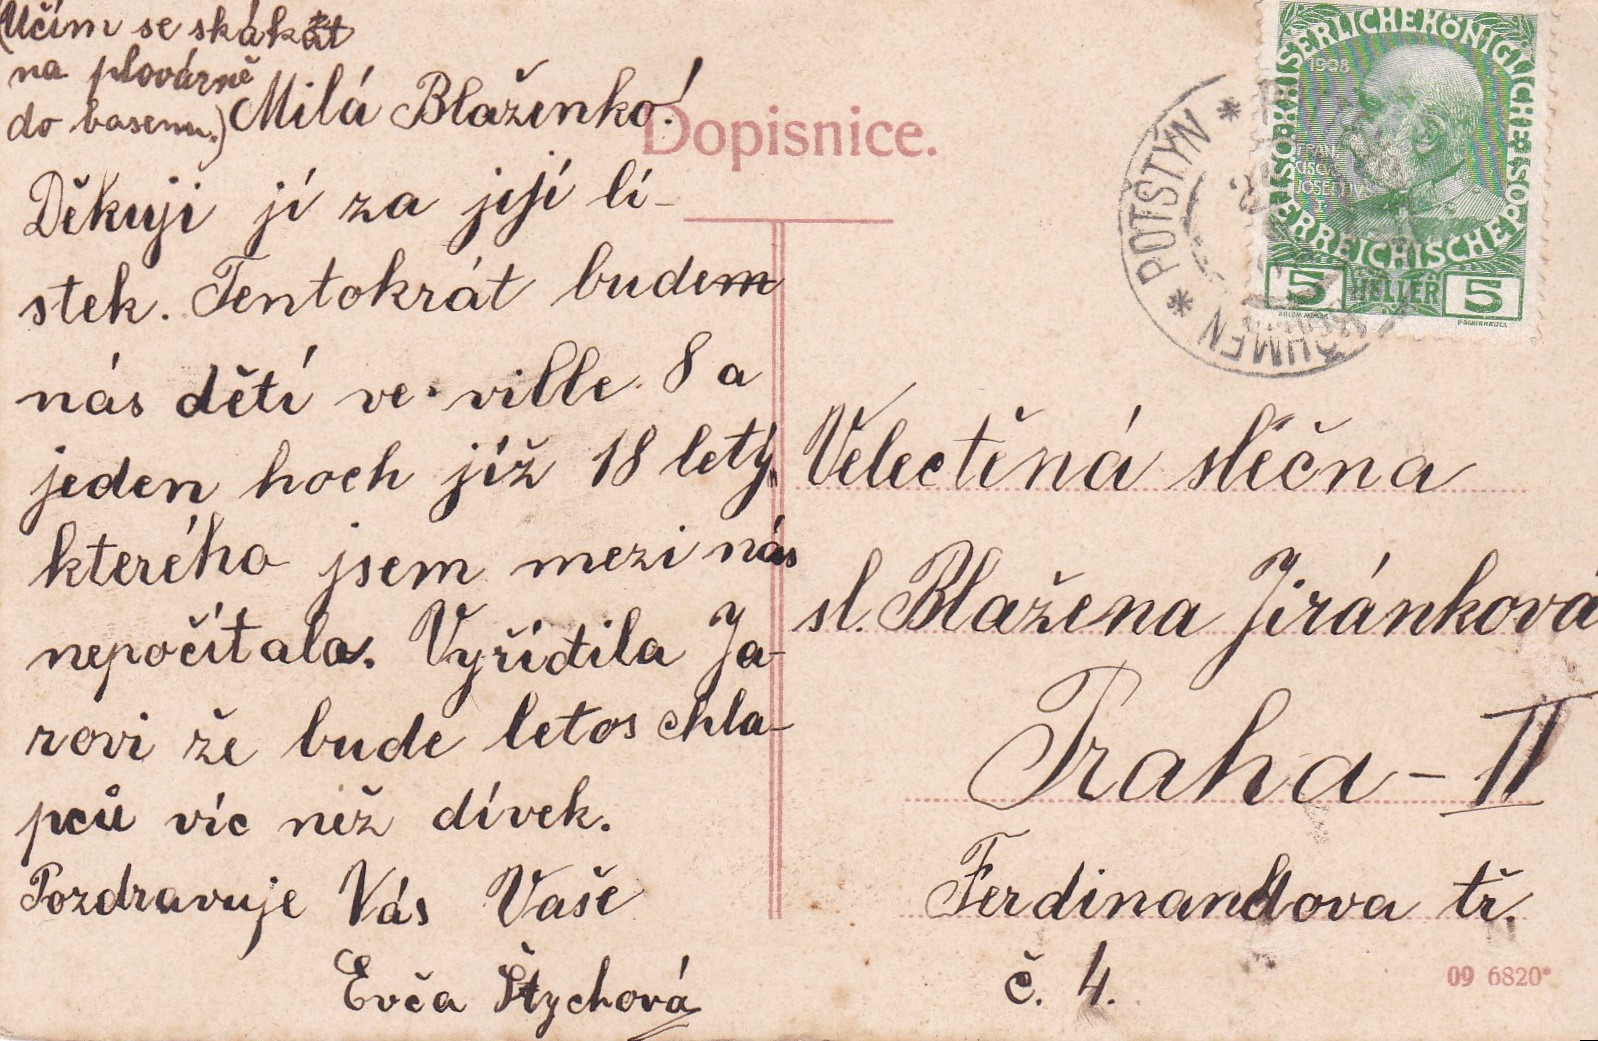 (Učím se skákat
na plovárně
do basenu.)
Milá Blaženko!
Děkuji jí za její lí-
stek. Tentokrát budem
nás dětí ve ville 8 a
jeden hoch jíž 18 letý,
kterého jsem mezi nás
nepočítala. Vyříďtila Ja-
rovi že bude letos chla-
pců víc než dívek.
Pozdravuje Vás Vaše
Evča Štychová
Dopisnice.
* POTŠTÝN *
BÖHMEN
KAISERLICHEKÖNIGLICHE
ÖSTERREICHISCHEPOST
1908
FRAN
CISCVS
JOSEPHVS
I.
5 HELLER 5
Velectěná slečna
sl. Blažena Jiránková
Praha - II
Ferdinandova tř.
č. 4.
09 6820*